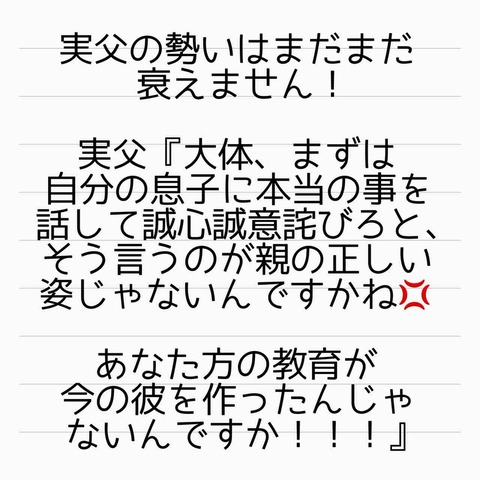 実父の勢いはまだまだ
衰えません！
実父『大体、まずは
自分の息子に本当の事を
話して誠心誠意詫びろと、
そう言うのが親の正しい
姿じゃないんですかね💢
あなた方の教育が
今の彼を作ったんじゃ
ないんですか！！！』